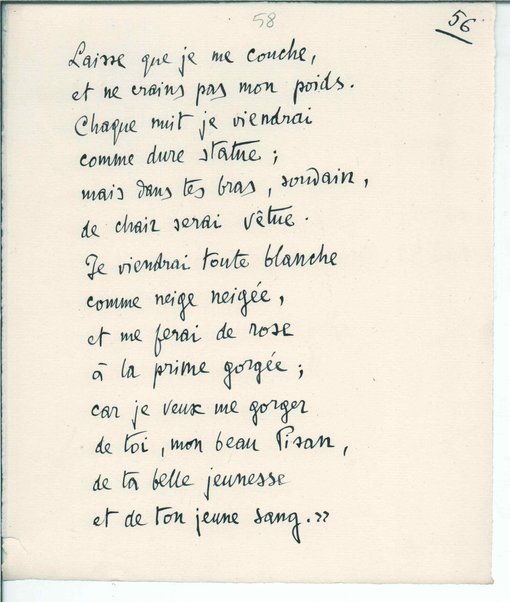 58
56
Laisse que je me couche,
et ne crains pas mon poids.
Chaque nuit je viendrai
comme dure statue ;
mais dans tes bras, soudain,
de chair serai vêtue.
Je viendrai toute blanche
comme neige neigée,
et me ferai de rose
à la prime gorgée ;
car je veux me gorger
de toi, mon beau Pisan,
de ta belle jeunesse
et de ton jeune sang. »